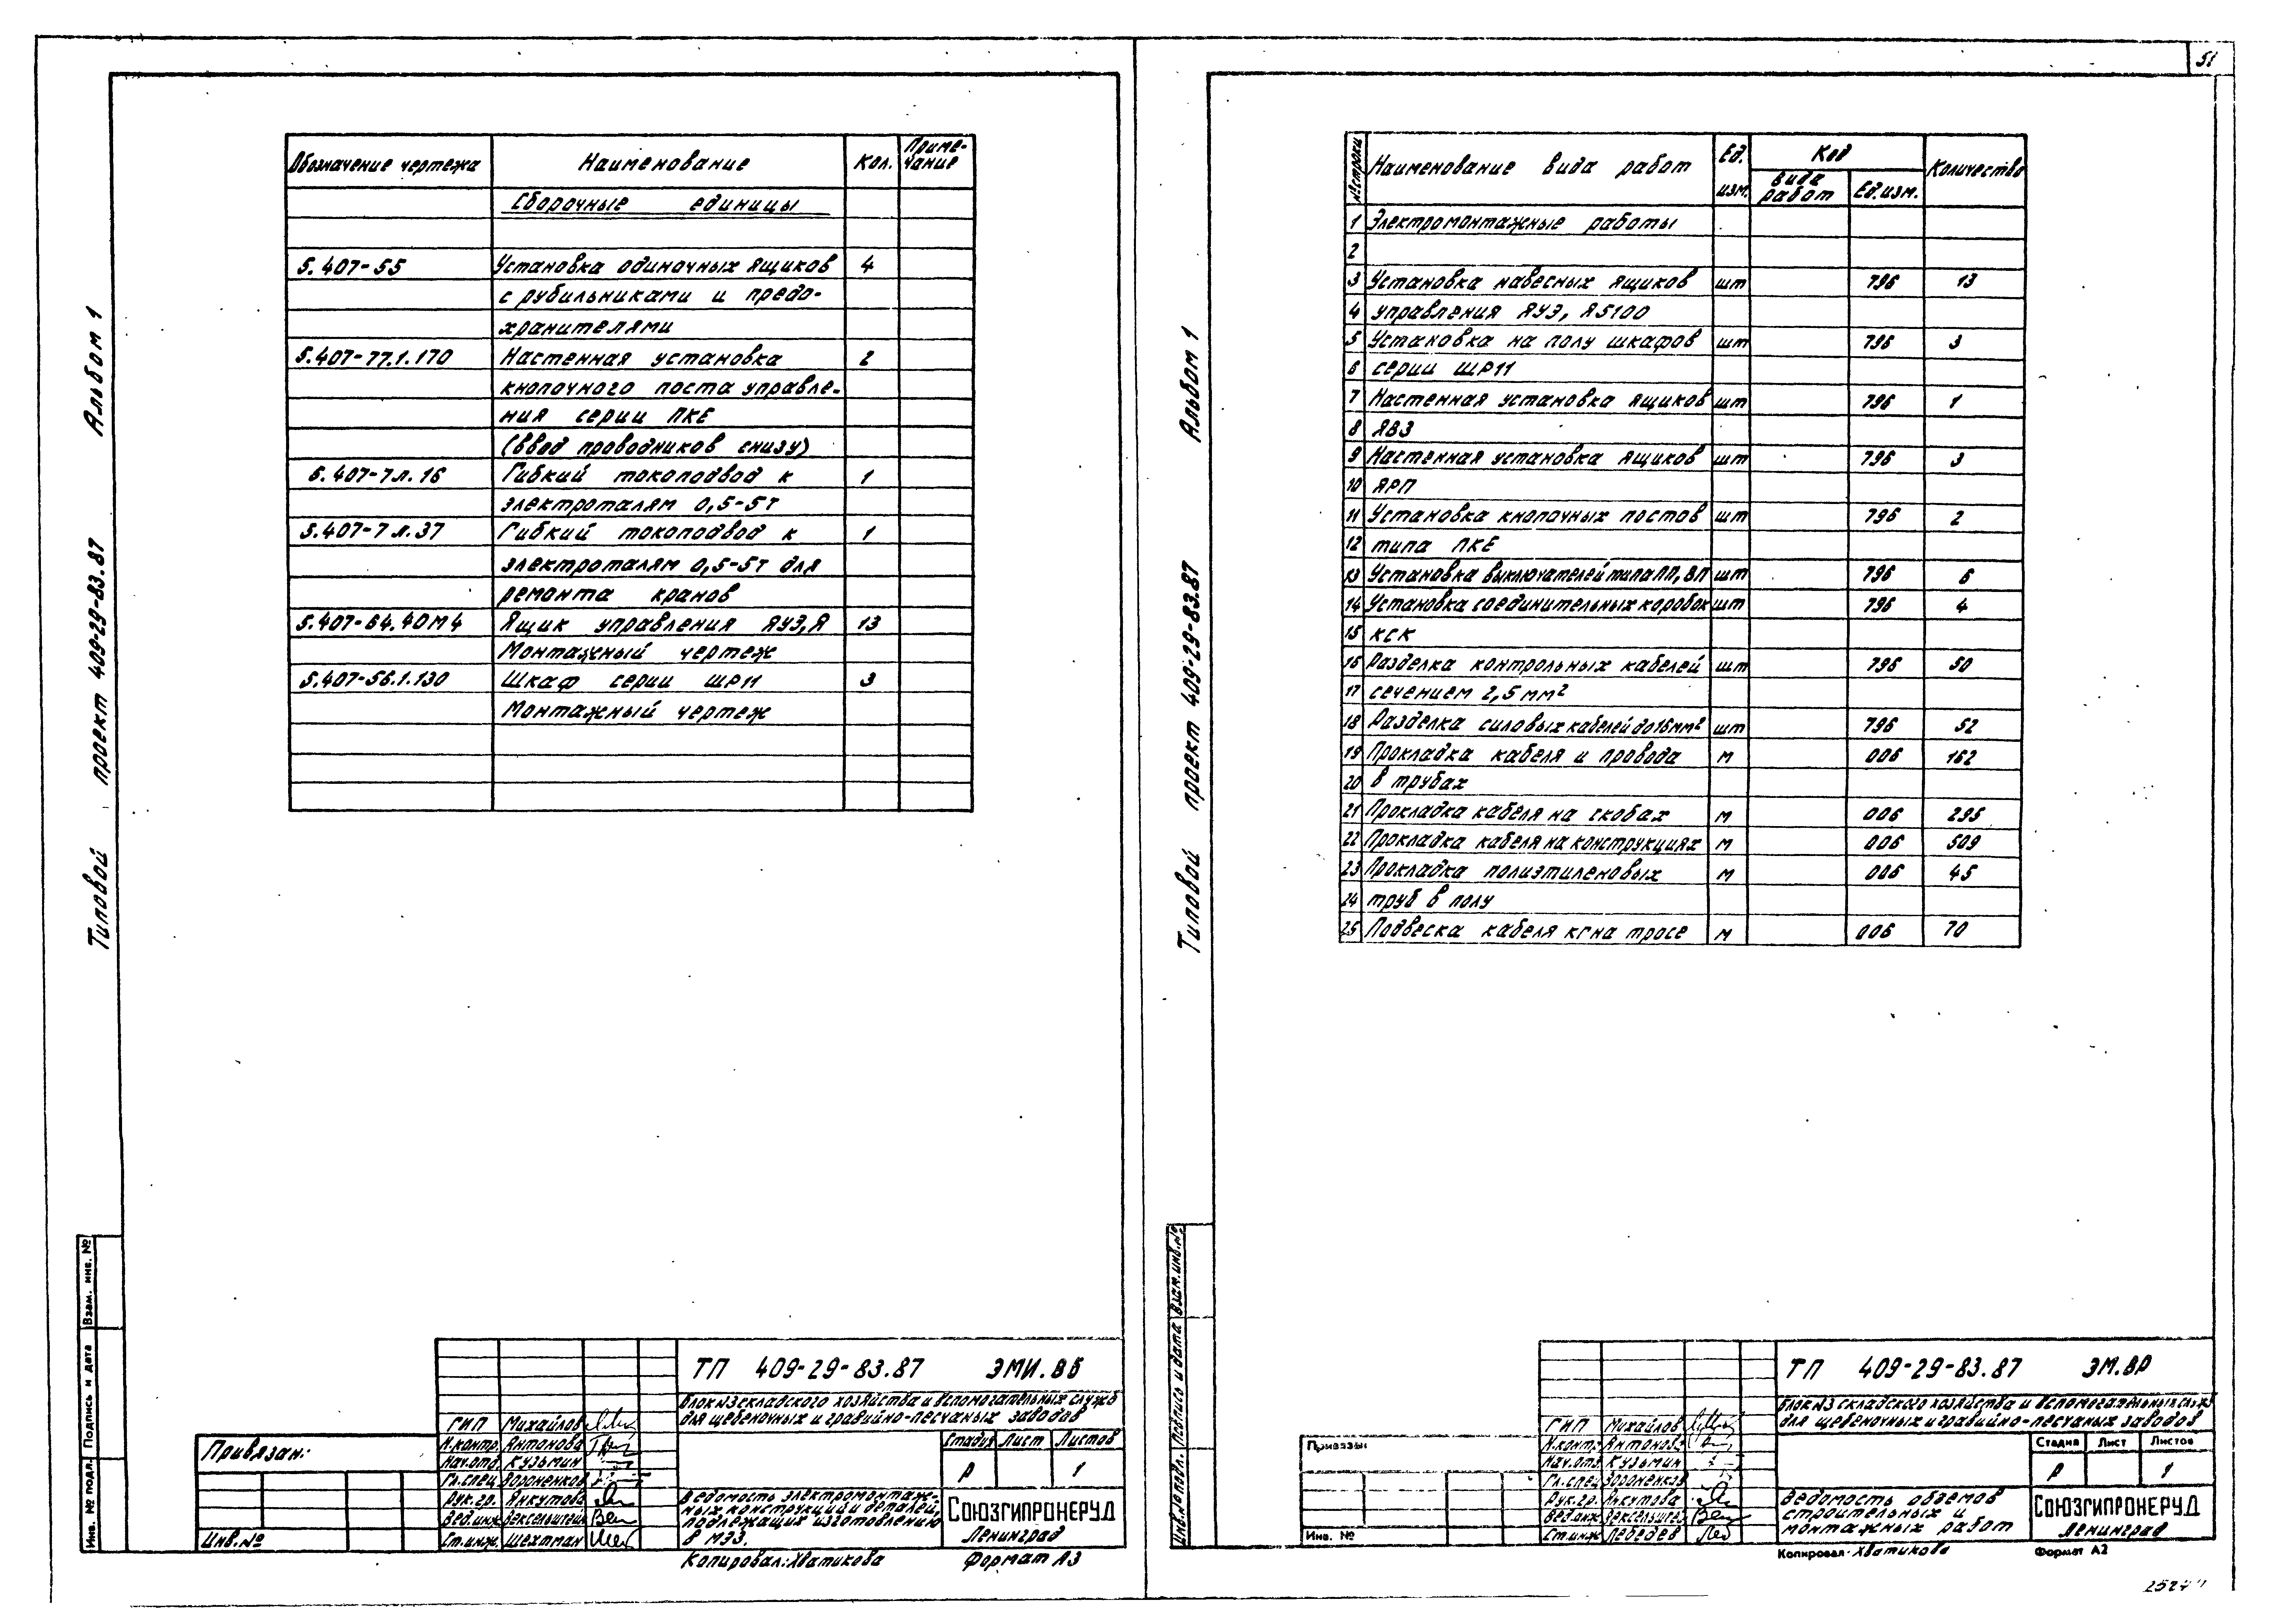 51
Альбом 1
Типовой проект 409-29-83.87
Обозначение чертежа Наименование Кол. Приме-
чание
Сборочные единицы
5.407-55 Установка одиночных ящиков 4
с рубильниками и предо-
хранителями
5.407-77.1.170 Настенная установка 2
кнопочного поста управле-
ния серии ПКЕ
(ввод проводников снизу)
6.407-7л.16 Гибкий токоподвод к 1
электроталям 0,5-5т
5.407-7л.37 Гибкий токоподвод к 1
электроталям 0,5-5т для
ремонта кранов
5.407-64.40М4 Ящик управления ЯУЭ,Я 13
Монтажный чертеж
5.407-56.1.130 Шкаф серии ШР11 3
Монтажный чертеж
Взам. инв. №
Подпись и дата
Инв. № подл.
Привязан:
Инв.№
ТП 409-29-83.87 ЭМИ.ВБ
Блок№3 складского хозяйства и вспомогательных служб
для щебеночных и гравийно-песчаных заводов
ГИП Михайлов
Н.контр. Антонова
Нач.отд. Кузьмин
Гл.спец. Вороненков
Рук.гр. Янкутова
Вед.инж. Вексельштейн
Ст.инж. Шехтман
Стадия Лист Листов
Р 1
Ведомость электромонтаж-
ных конструкций и деталей,
подлежащих изготовлению
в МЭЗ.
СОЮЗГИПРОНЕРУД
Ленинград
Копировал: Хватикова Формат А3
Альбом 1
Типовой проект 409-29-83.87
№ строки Наименование вида работ Ед.
изм. Код Количество
вида
работ Ед.изм.
1 Электромонтажные работы
2
3 Установка навесных ящиков шт 796 13
4 управления ЯУЭ, Я5100
5 Установка на полу шкафов шт 796 3
6 серии ШР11
7 Настенная установка ящиков шт 796 1
8 ЯВЗ
9 Настенная установка ящиков шт 796 3
10 ЯРП
11 Установка кнопочных постов шт 796 2
12 типа ПКЕ
13 Установка выключателей типа ПП, ВП шт 796 6
14 Установка соединительных коробок шт 796 4
15 КСК
16 Разделка контрольных кабелей шт 796 50
17 сечением 2,5мм²
18 Разделка силовых кабелей до 16мм² шт 796 52
19 Прокладка кабеля и провода м 006 162
20 в трубах
21 Прокладка кабеля на скобах м 006 295
22 Прокладка кабеля на конструкциях м 006 509
23 Прокладка полиэтиленовых м 006 45
24 труб в полу
25 Подвеска кабеля кг на тросе м 006 70
Взам.инв.№
Подпись и дата
Инв.№ подл.
Привязан
Инв. №
ТП 409-29-83.87 ЭМ.ВР
Блок№3 складского хозяйства и вспомогательных служб
для щебеночных и гравийно-песчаных заводов
ГИП Михайлов
Н.контр. Антонова
Нач.отд. Кузьмин
Гл.спец Вороненков
Рук.гр. Янкутова
Вед.инж. Вексельштейн
Ст.инж Лебедев
Стадия Лист Листов
Р 1
Ведомость объемов
строительных и
монтажных работ
СОЮЗГИПРОНЕРУД
Ленинград
Копировал- Хватикова Формат А2